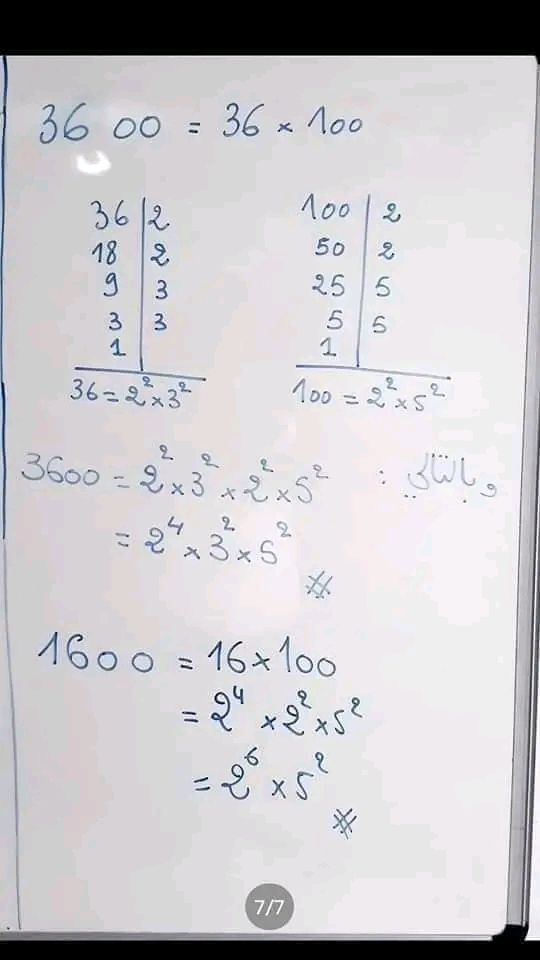 3600 = 36 × 100
36 | 2
18 | 2
9 | 3
3 | 3
1 |
36 = 2² × 3²
100 | 2
50 | 2
25 | 5
5 | 5
1 |
100 = 2² × 5²
وبالتالي :
3600 = 2² × 3² × 2² × 5²
= 2⁴ × 3² × 5²
1600 = 16 × 100
= 2⁴ × 2² × 5²
= 2⁶ × 5²
7/7